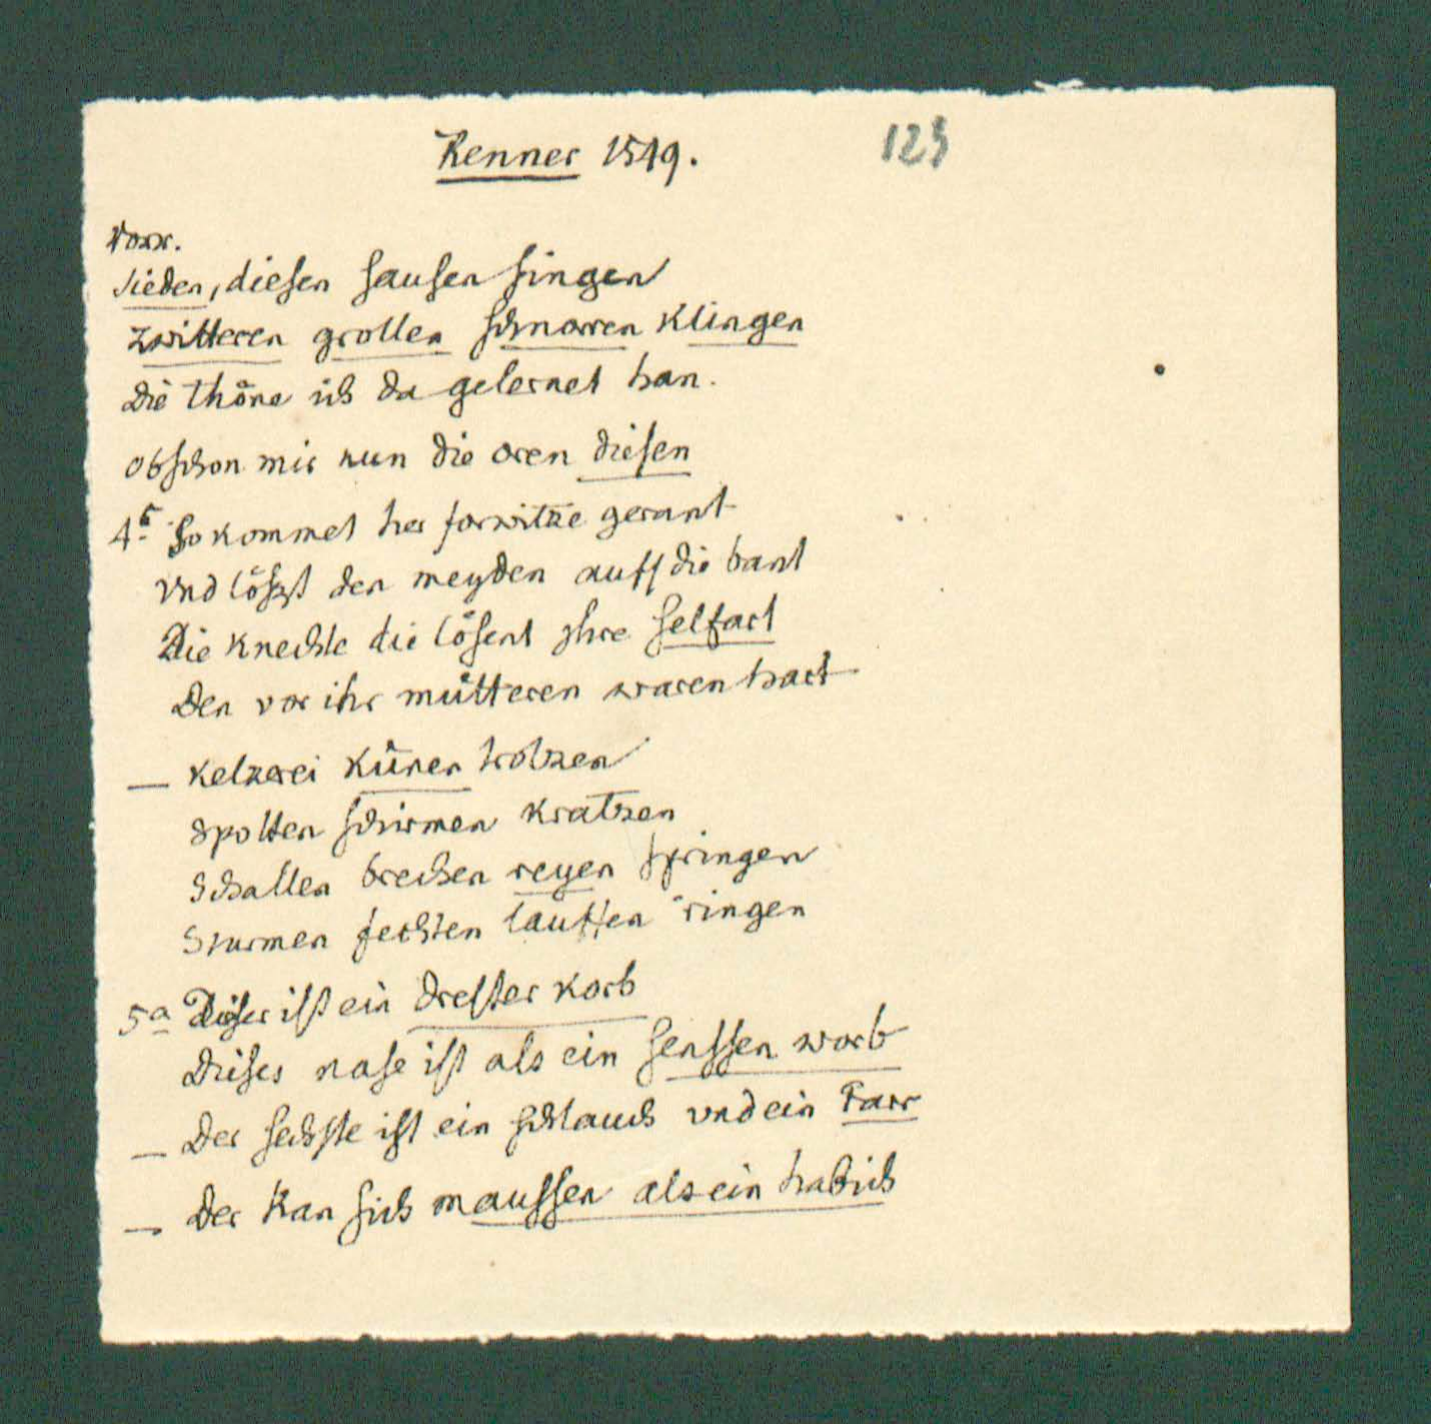 Renner 1549.
123
Vorr.
sieden, diesen sausen singen
zwitteren grollen schnorren klingen
Die thöne ich da gelernet han.
obschon mir nun die oren diesen
4b So kommet her forwitze gerant
Vnd lößt den meyden auff die bant
Die knechte die lösent yhre selfart
Den vor ihr mütteren waren hart
— kelzerei küner holtzen
Spolten schirmen kratzen
Schallen brechen reyen springen
Sturmen fechten lauffen ringen
5a Dieser ist ein drester korb
Dieses nase ist als ein senssen worb
— Der sechste ist ein schlauch vnd ein Farr
— Der kan sich maussen als ein habich